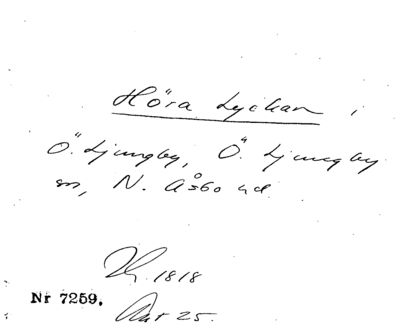 Höra Lyckan i
Ö. Ljungby, Ö. Ljungby
sn, N. Åsbo hd
1818
Nr 7259. Akt 25.